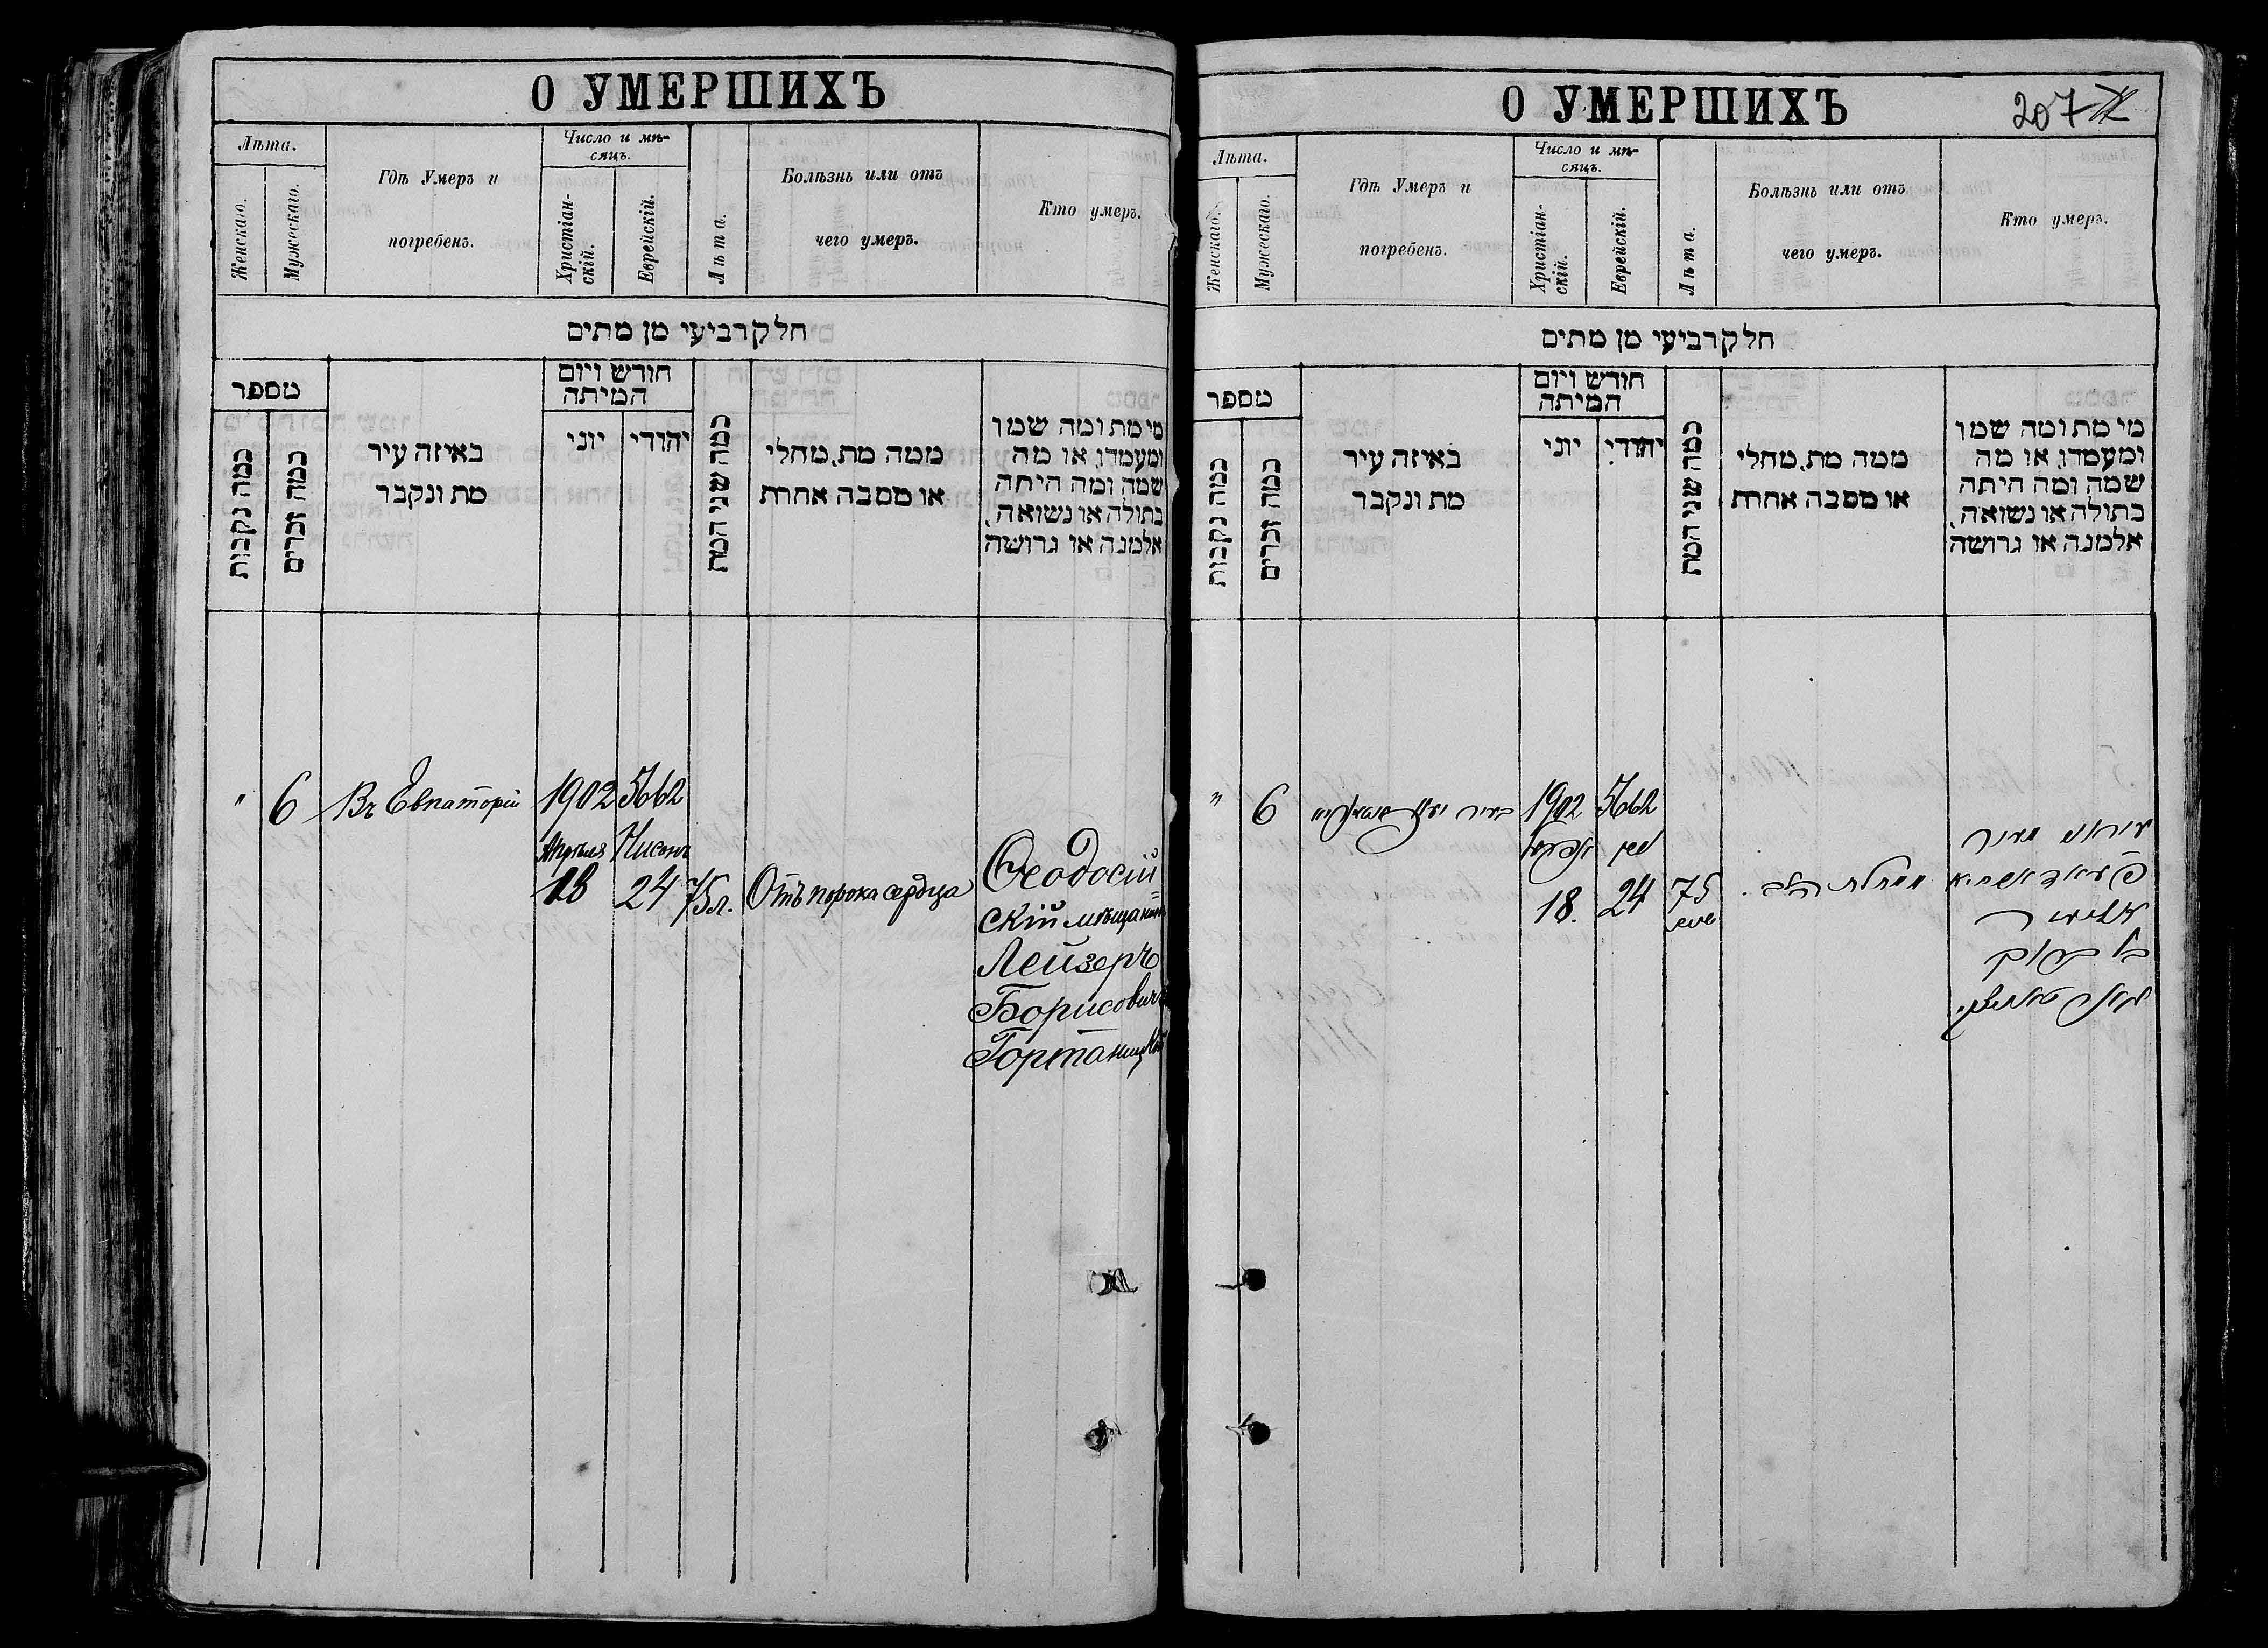 О УМЕРШИХЪ
Лѣта.
Женскаго.
Мужескаго.
Гдѣ Умеръ и
погребенъ.
Число и мѣ-
сяцъ.
Христіан-
скій.
Еврейскій.
Лѣта.
Болѣзнь или отъ
чего умеръ.
Кто умеръ.
חלק רביעי מן מתים
מספר
כמה נקבות
כמה זכרים
באיזה עיר
מת ונקבר
חודש ויום
המיתה
יוני
יהודי
כמה שני המת
ממה מת, מחלי
או מסבה אחרת
מי מת ומה שמו
ומעמדו, או מה
שמה ומה היתה
בתולה או נשואה,
אלמנה או גרושה
" 6 Въ Евпаторіи
1902 5662
Апрѣля Нисонъ
18 24 75 л. Отъ порока сердца
Ѳеодосій
скій мѣщанинъ
Лейзеръ
Борисовичъ
О УМЕРШИХЪ
207
Лѣта.
Женскаго.
Мужескаго.
Гдѣ Умеръ и
погребенъ.
Число и мѣ-
сяцъ.
Христіан-
скій.
Еврейскій.
Лѣта.
Болѣзнь или отъ
чего умеръ.
Кто умеръ.
חלק רביעי מן מתים
מספר
כמה נקבות
כמה זכרים
באיזה עיר
מת ונקבר
חודש ויום
המיתה
יוני
יהודי
כמה שני המת
ממה מת, מחלי
או מסבה אחרת
מי מת ומה שמו
ומעמדו, או מה
שמה ומה היתה
בתולה או נשואה,
אלמנה או גרושה
" 6
1902 5662
אפריל ניסן
18. 24 75
שנה
מחלת הלב.